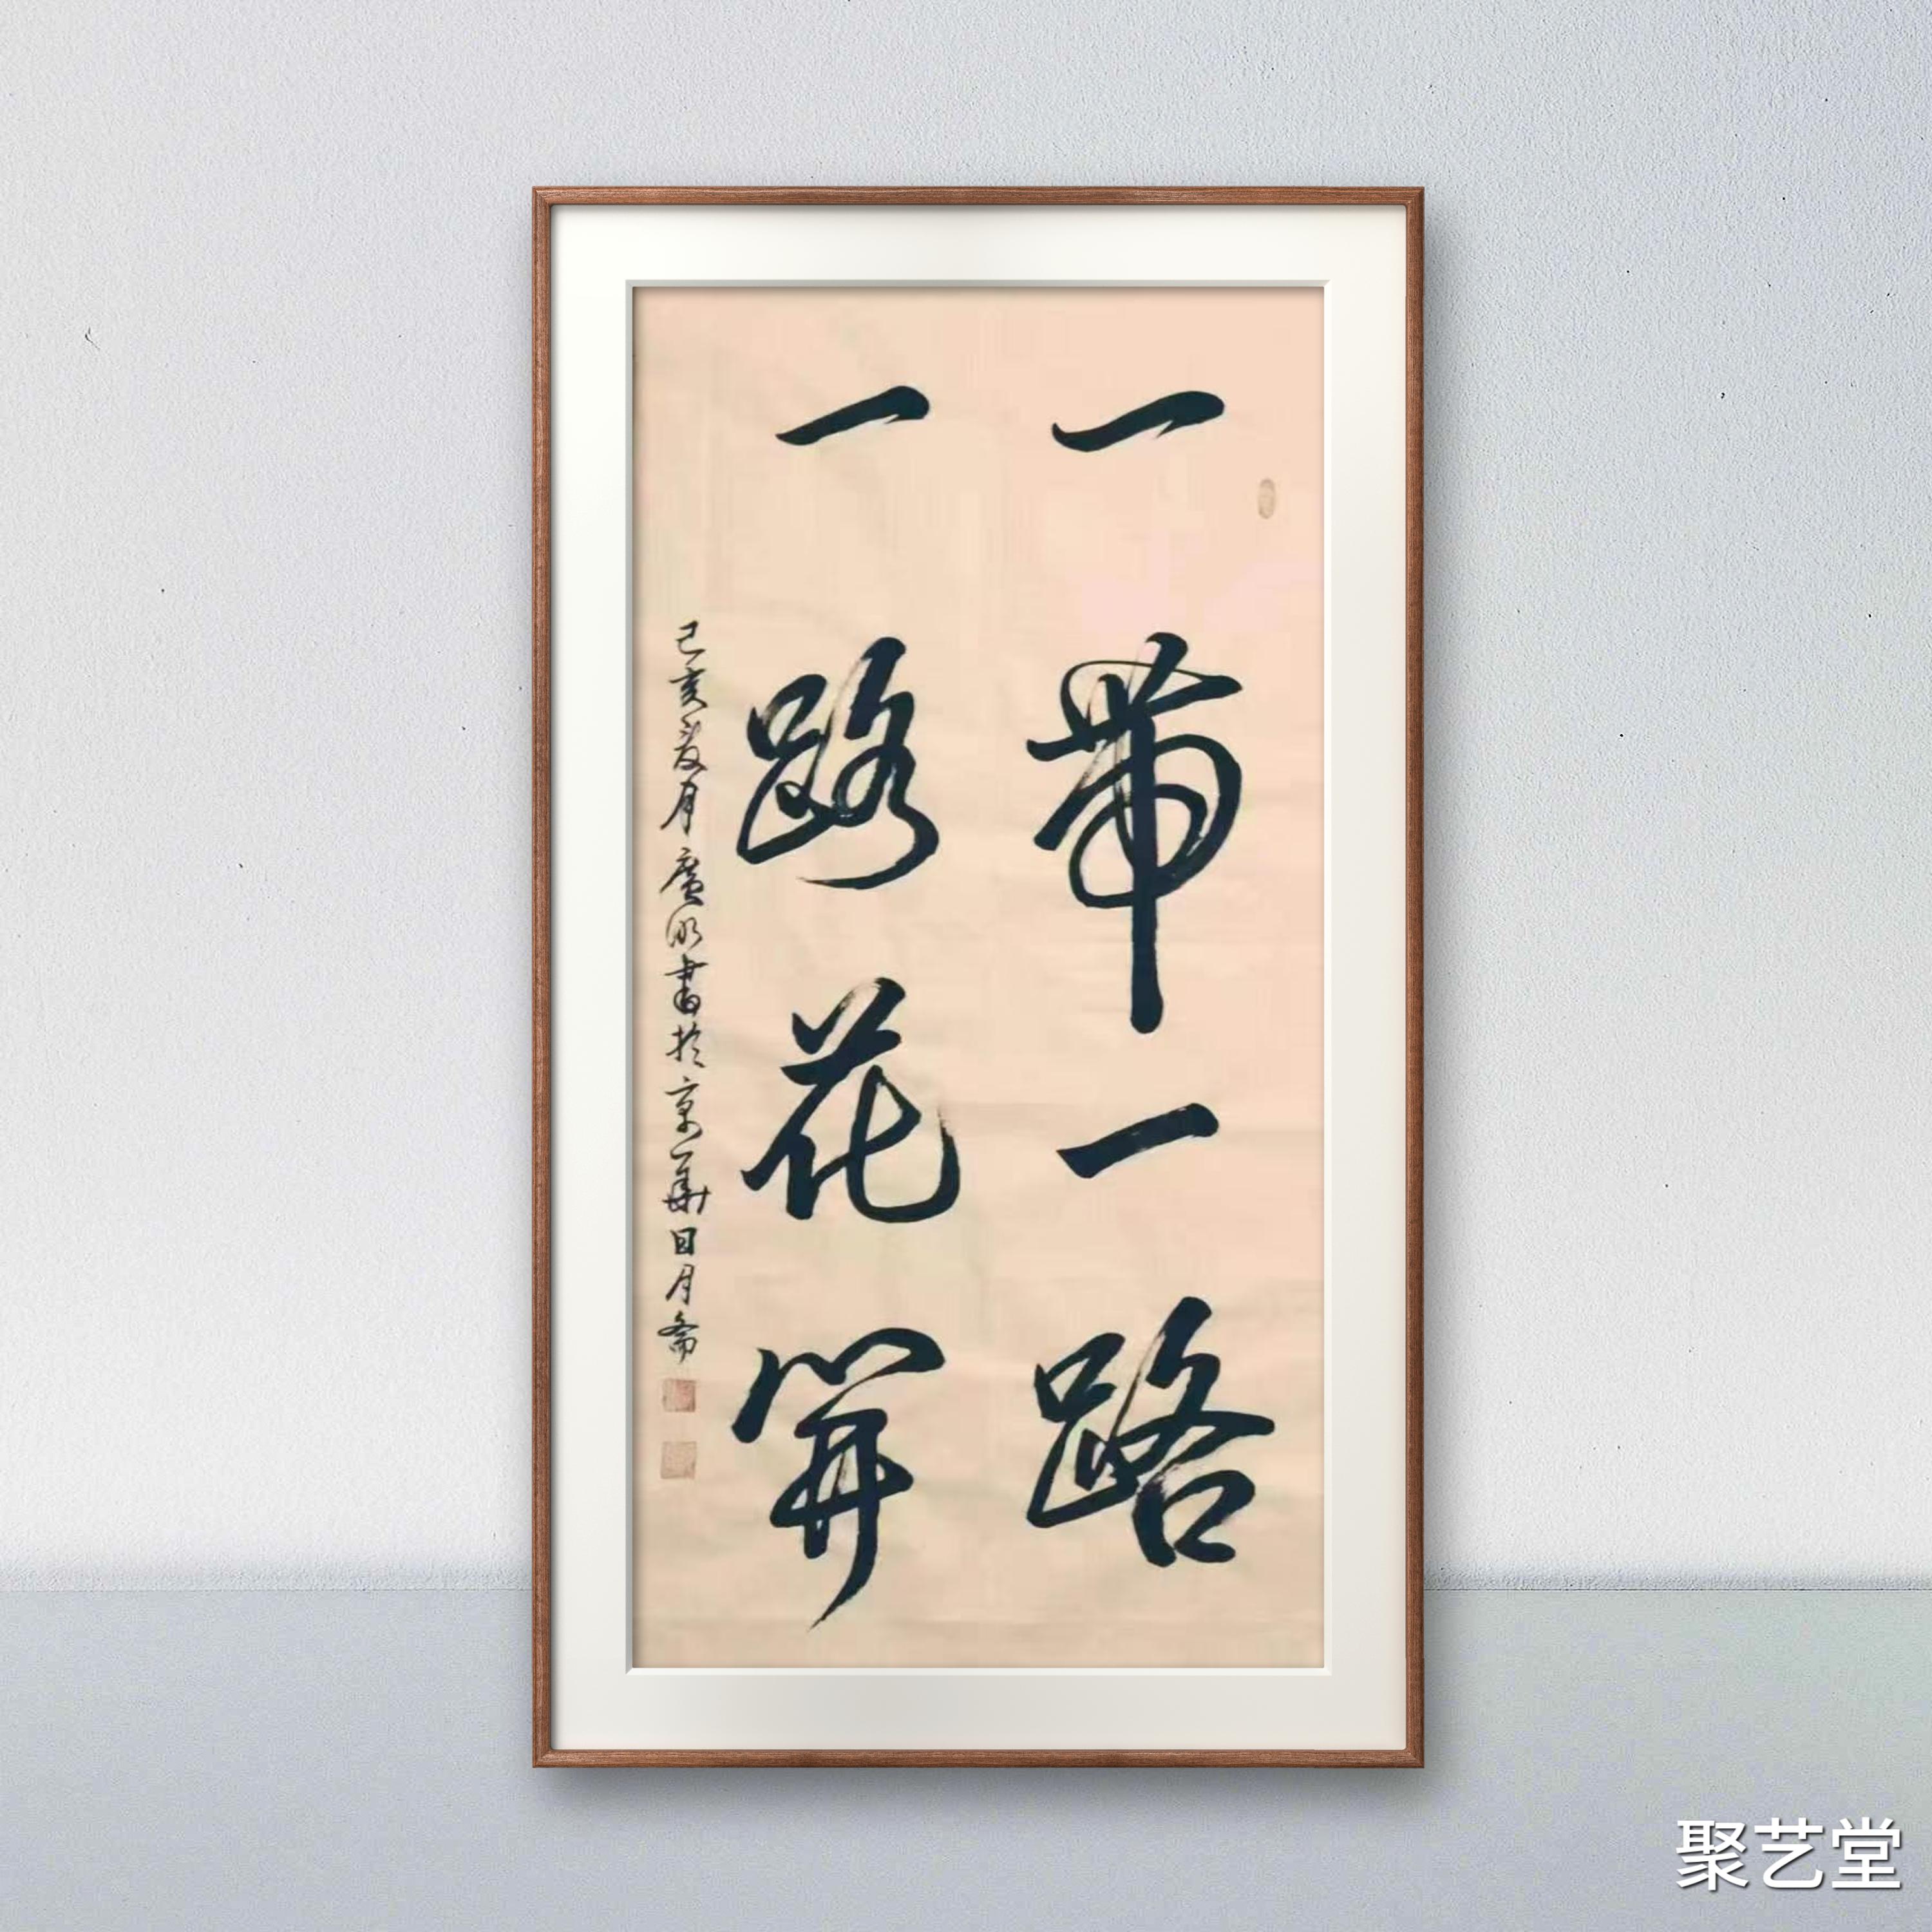 一帶一路
一路花開
己亥夏月廣明書於京華日月斋
聚艺堂